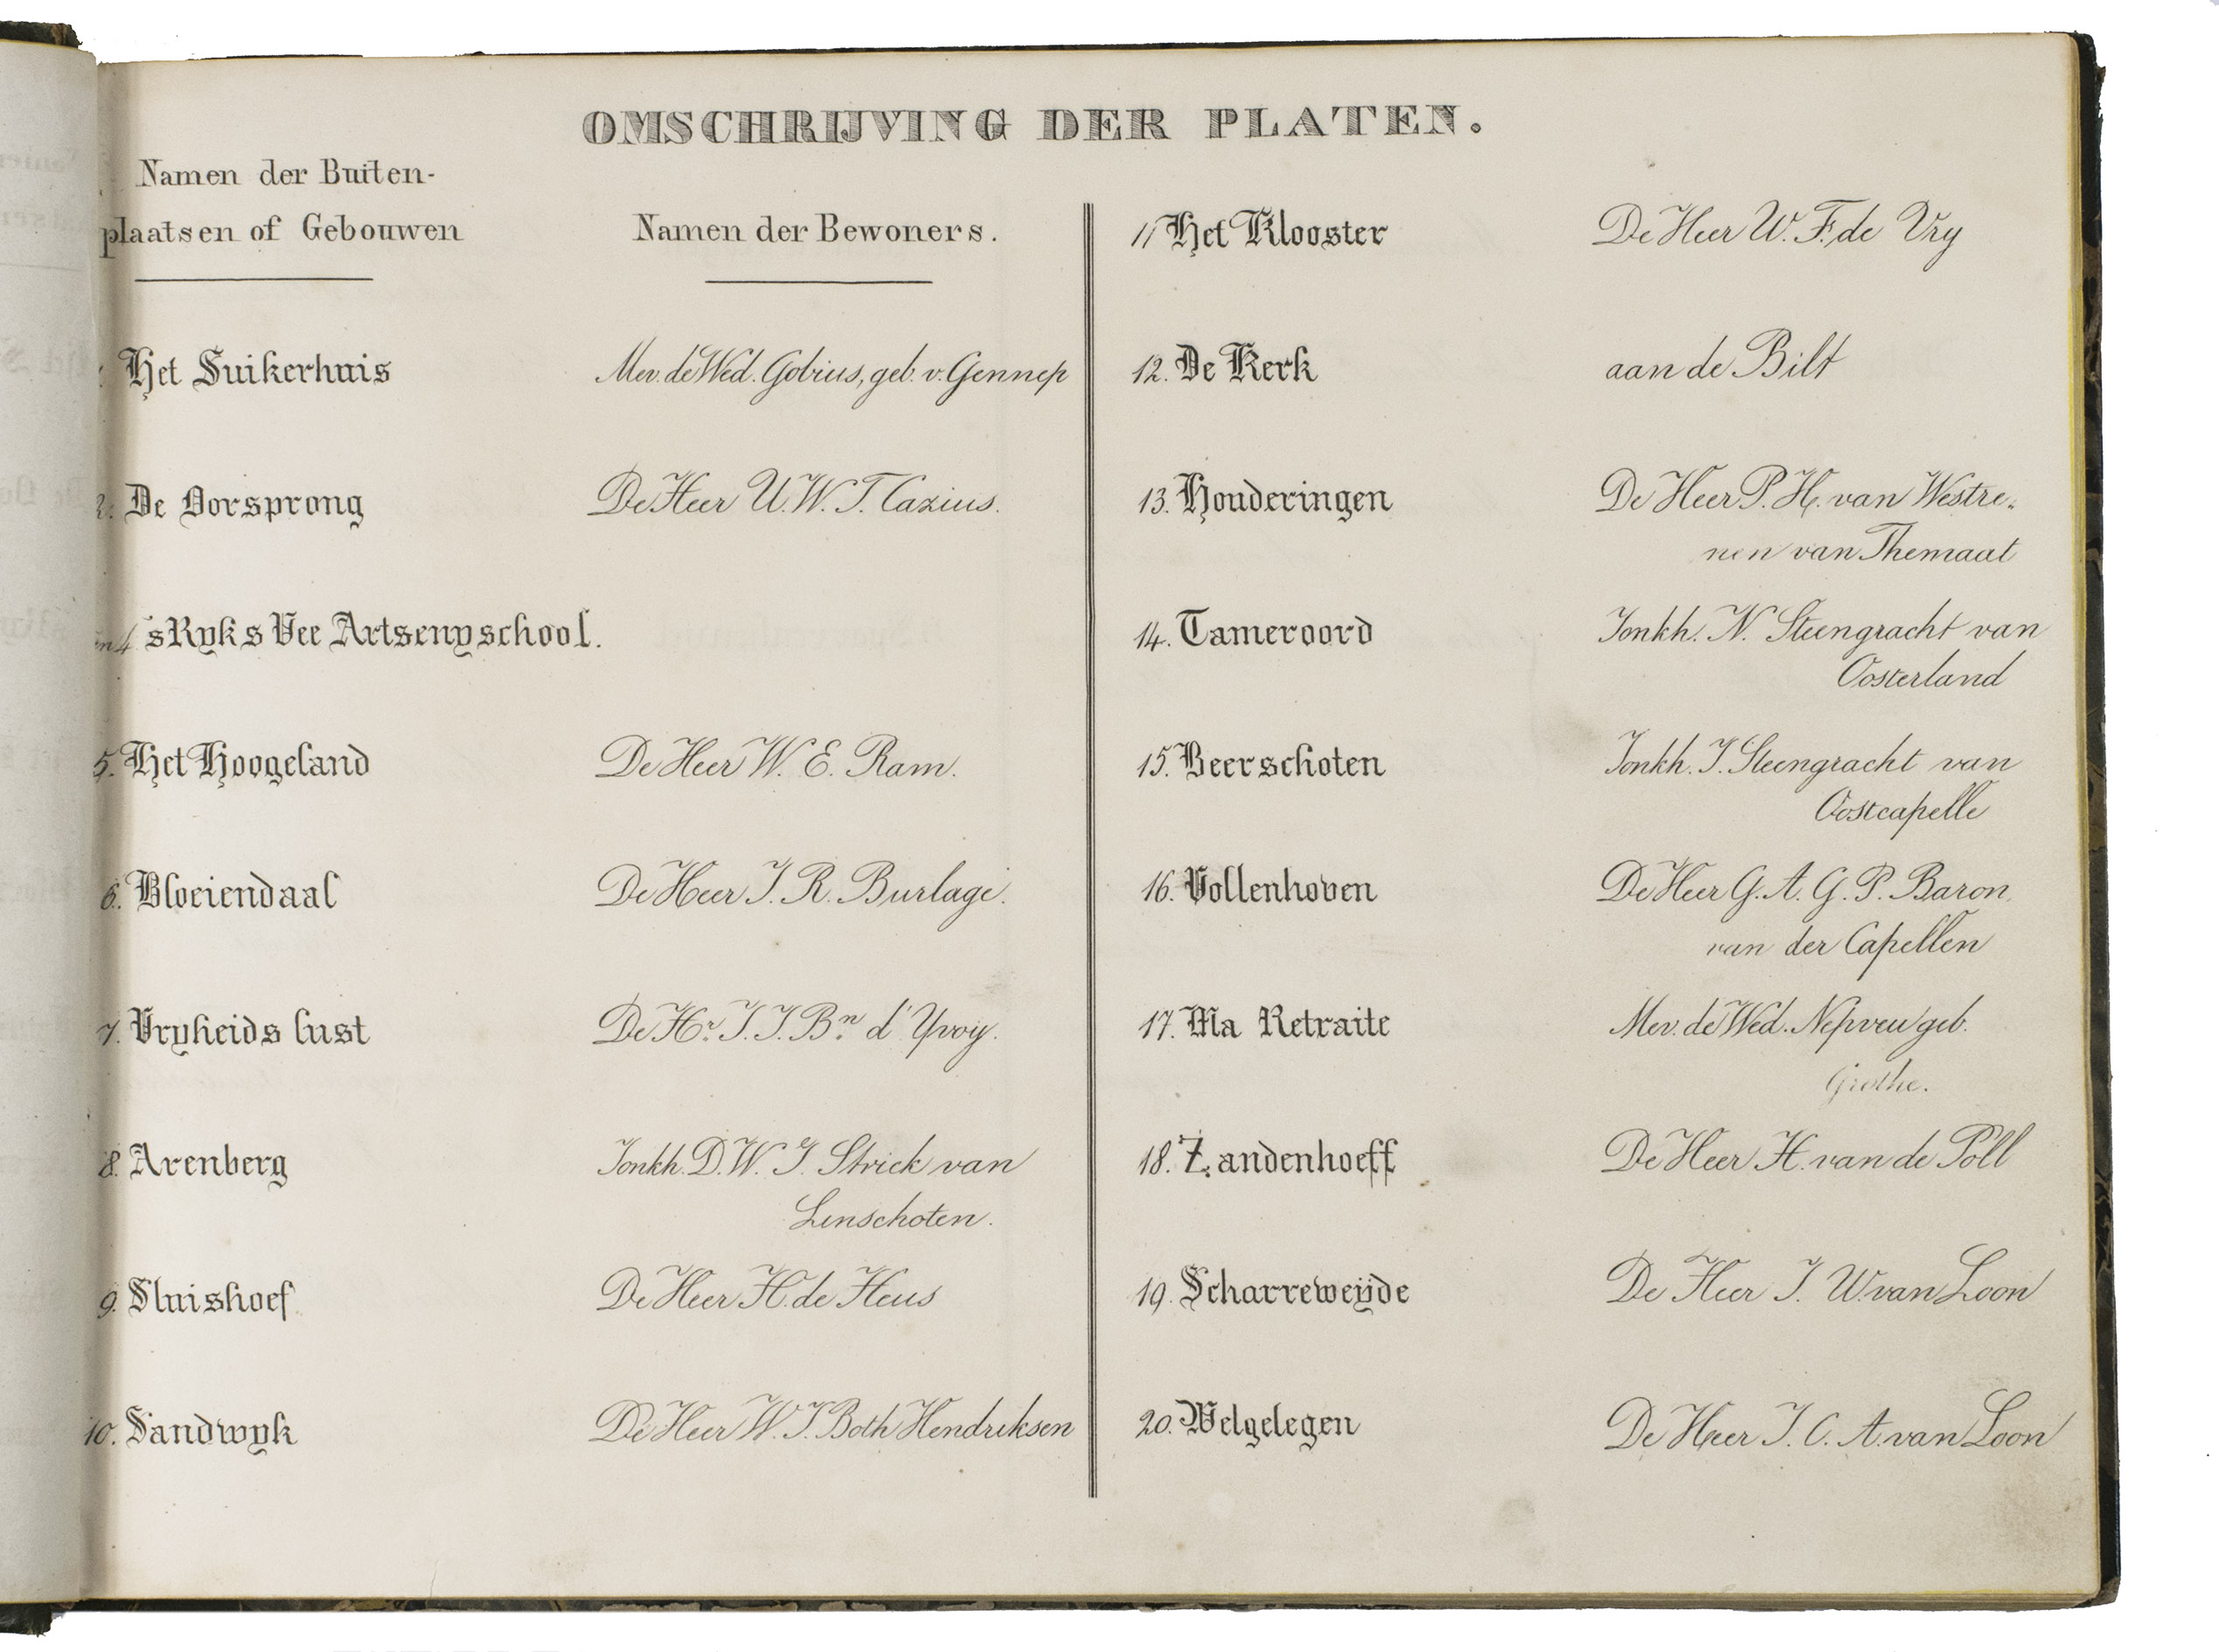 OMSCHRIJVING DER PLATEN.
Namen der Buiten-
plaatsen of Gebouwen
Namen der Bewoners.
Het Suikerhuis Mev. de Wed. Gobius, geb. v. Gennep
2. De Oorsprong De Heer U. W. T. Cazius.
en 4 'sRyks Vee Artsenyschool.
5. Het Hoogeland De Heer W. E. Ram.
6. Bloeiendaal De Heer I. R. Burlage.
7. Vryheids lust De Hr. I. I. Bn. d'Yvoy.
8. Arenberg Jonkh. D. W. I. Strick van
Linschoten.
9. Sluishoef De Heer H. de Heus
10. Sandwyk De Heer W. I. Both Hendriksen
11 Het Klooster De Heer W. F. de Vry
12. De Kerk aan de Bilt
13. Houderingen De Heer P. H. van Westre„
nen van Themaat
14. Tameroord Jonkh. N. Steengracht van
Oosterland
15. Beerschoten Jonkh. I. Steengracht van
Oostcapelle
16. Vollenhoven De Heer G. A. G. P. Baron
van der Capellen
17. Ma Retraite Mev. de Wed. Nepveu geb.
Grothe.
18. Zandenhoeff De Heer H. van de Poll
19. Scharreweijde De Heer I. W. van Loon
20. Welgelegen De Heer I. C. A. van Loon